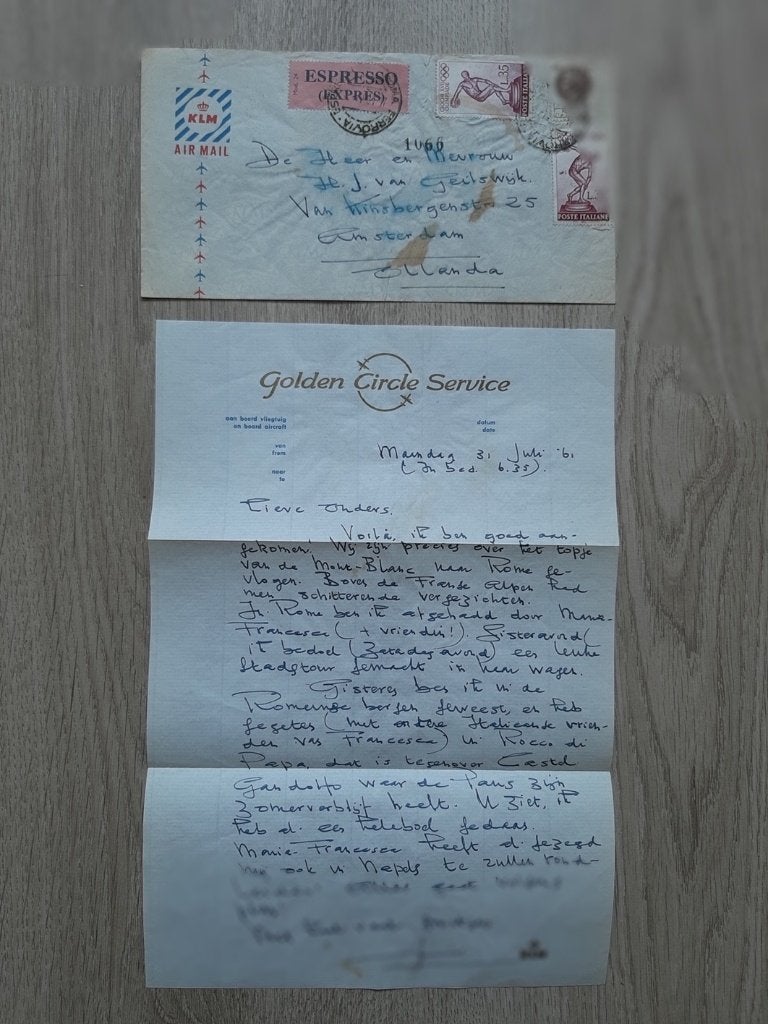 ESPRESSO
(EXPRÈS)
KLM
AIR MAIL
L.35
POSTE ITALIANE
FERROVIA
1066
POSTE ITALIANE
De Heer en Mevrouw
H. J. van Geilswijk.
Van Kinsbergenstr 25
Amsterdam
Ollanda
Golden Circle Service
aan boord vliegtuig
on board aircraft
datum
date
van
from
naar
to
Maandag 31 Juli '61
(In bed 6.35).
Lieve Ouders,
Voilà, ik ben goed aan-
gekomen! Wij zijn precies over het topje
van de Mont-Blanc naar Rome ge-
vlogen. Boven de Franse Alpen had
men schitterende vergezichten.
In Rome ben ik afgehaald door Maria-
Francesca (+ vriendin!). Gisteravond (
ik bedoel (Zaterdagavond) een leuke
stadstour gemaakt in haar wagen.
Gisteren ben ik in de
Romeinse bergen geweest, en heb
gegeten (met andere Italiaanse vrien-
den van Francesca) in Rocca di
Papa, dat is tegenover Castel
Gandolfo waar de Paus zijn
zomerverblijf heeft. U ziet, ik
heb al een heleboel gedaan.
Maria-Francesca heeft al gezegd
mij ook in Napels te zullen rond-